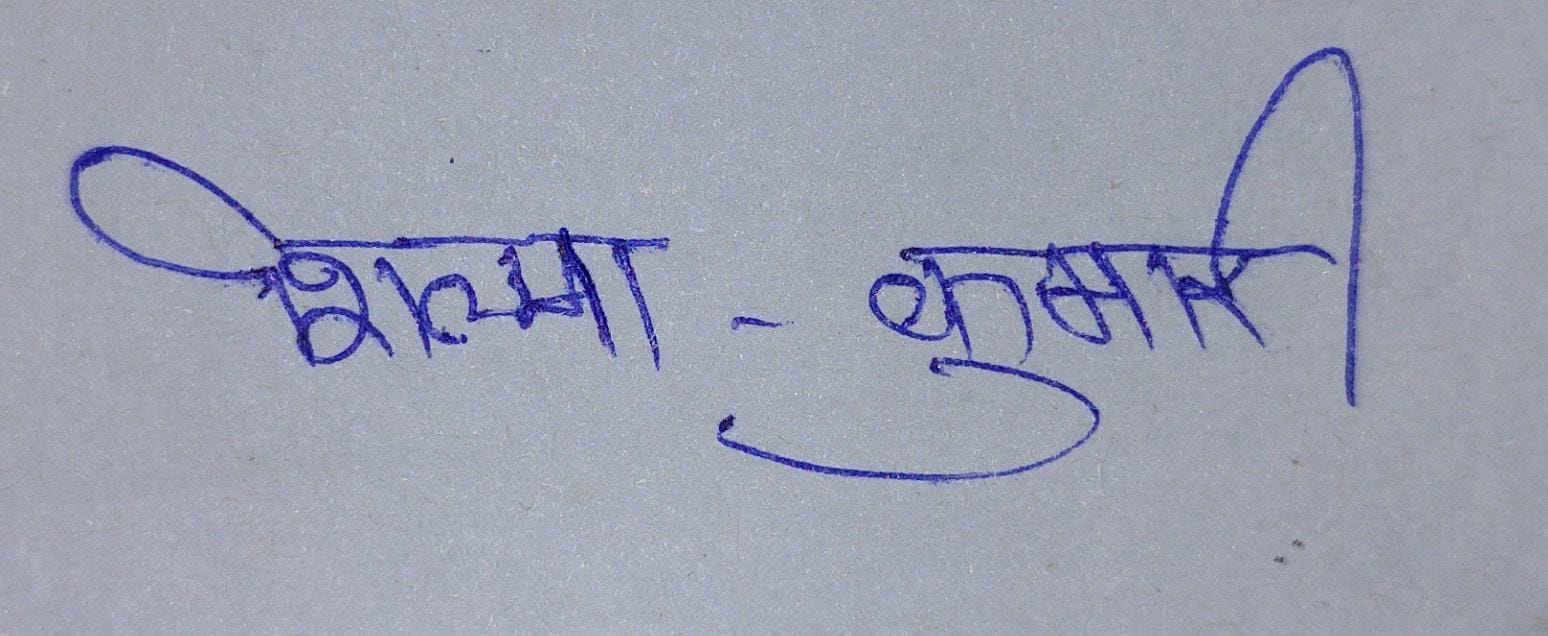 शिल्पा - कुमारी